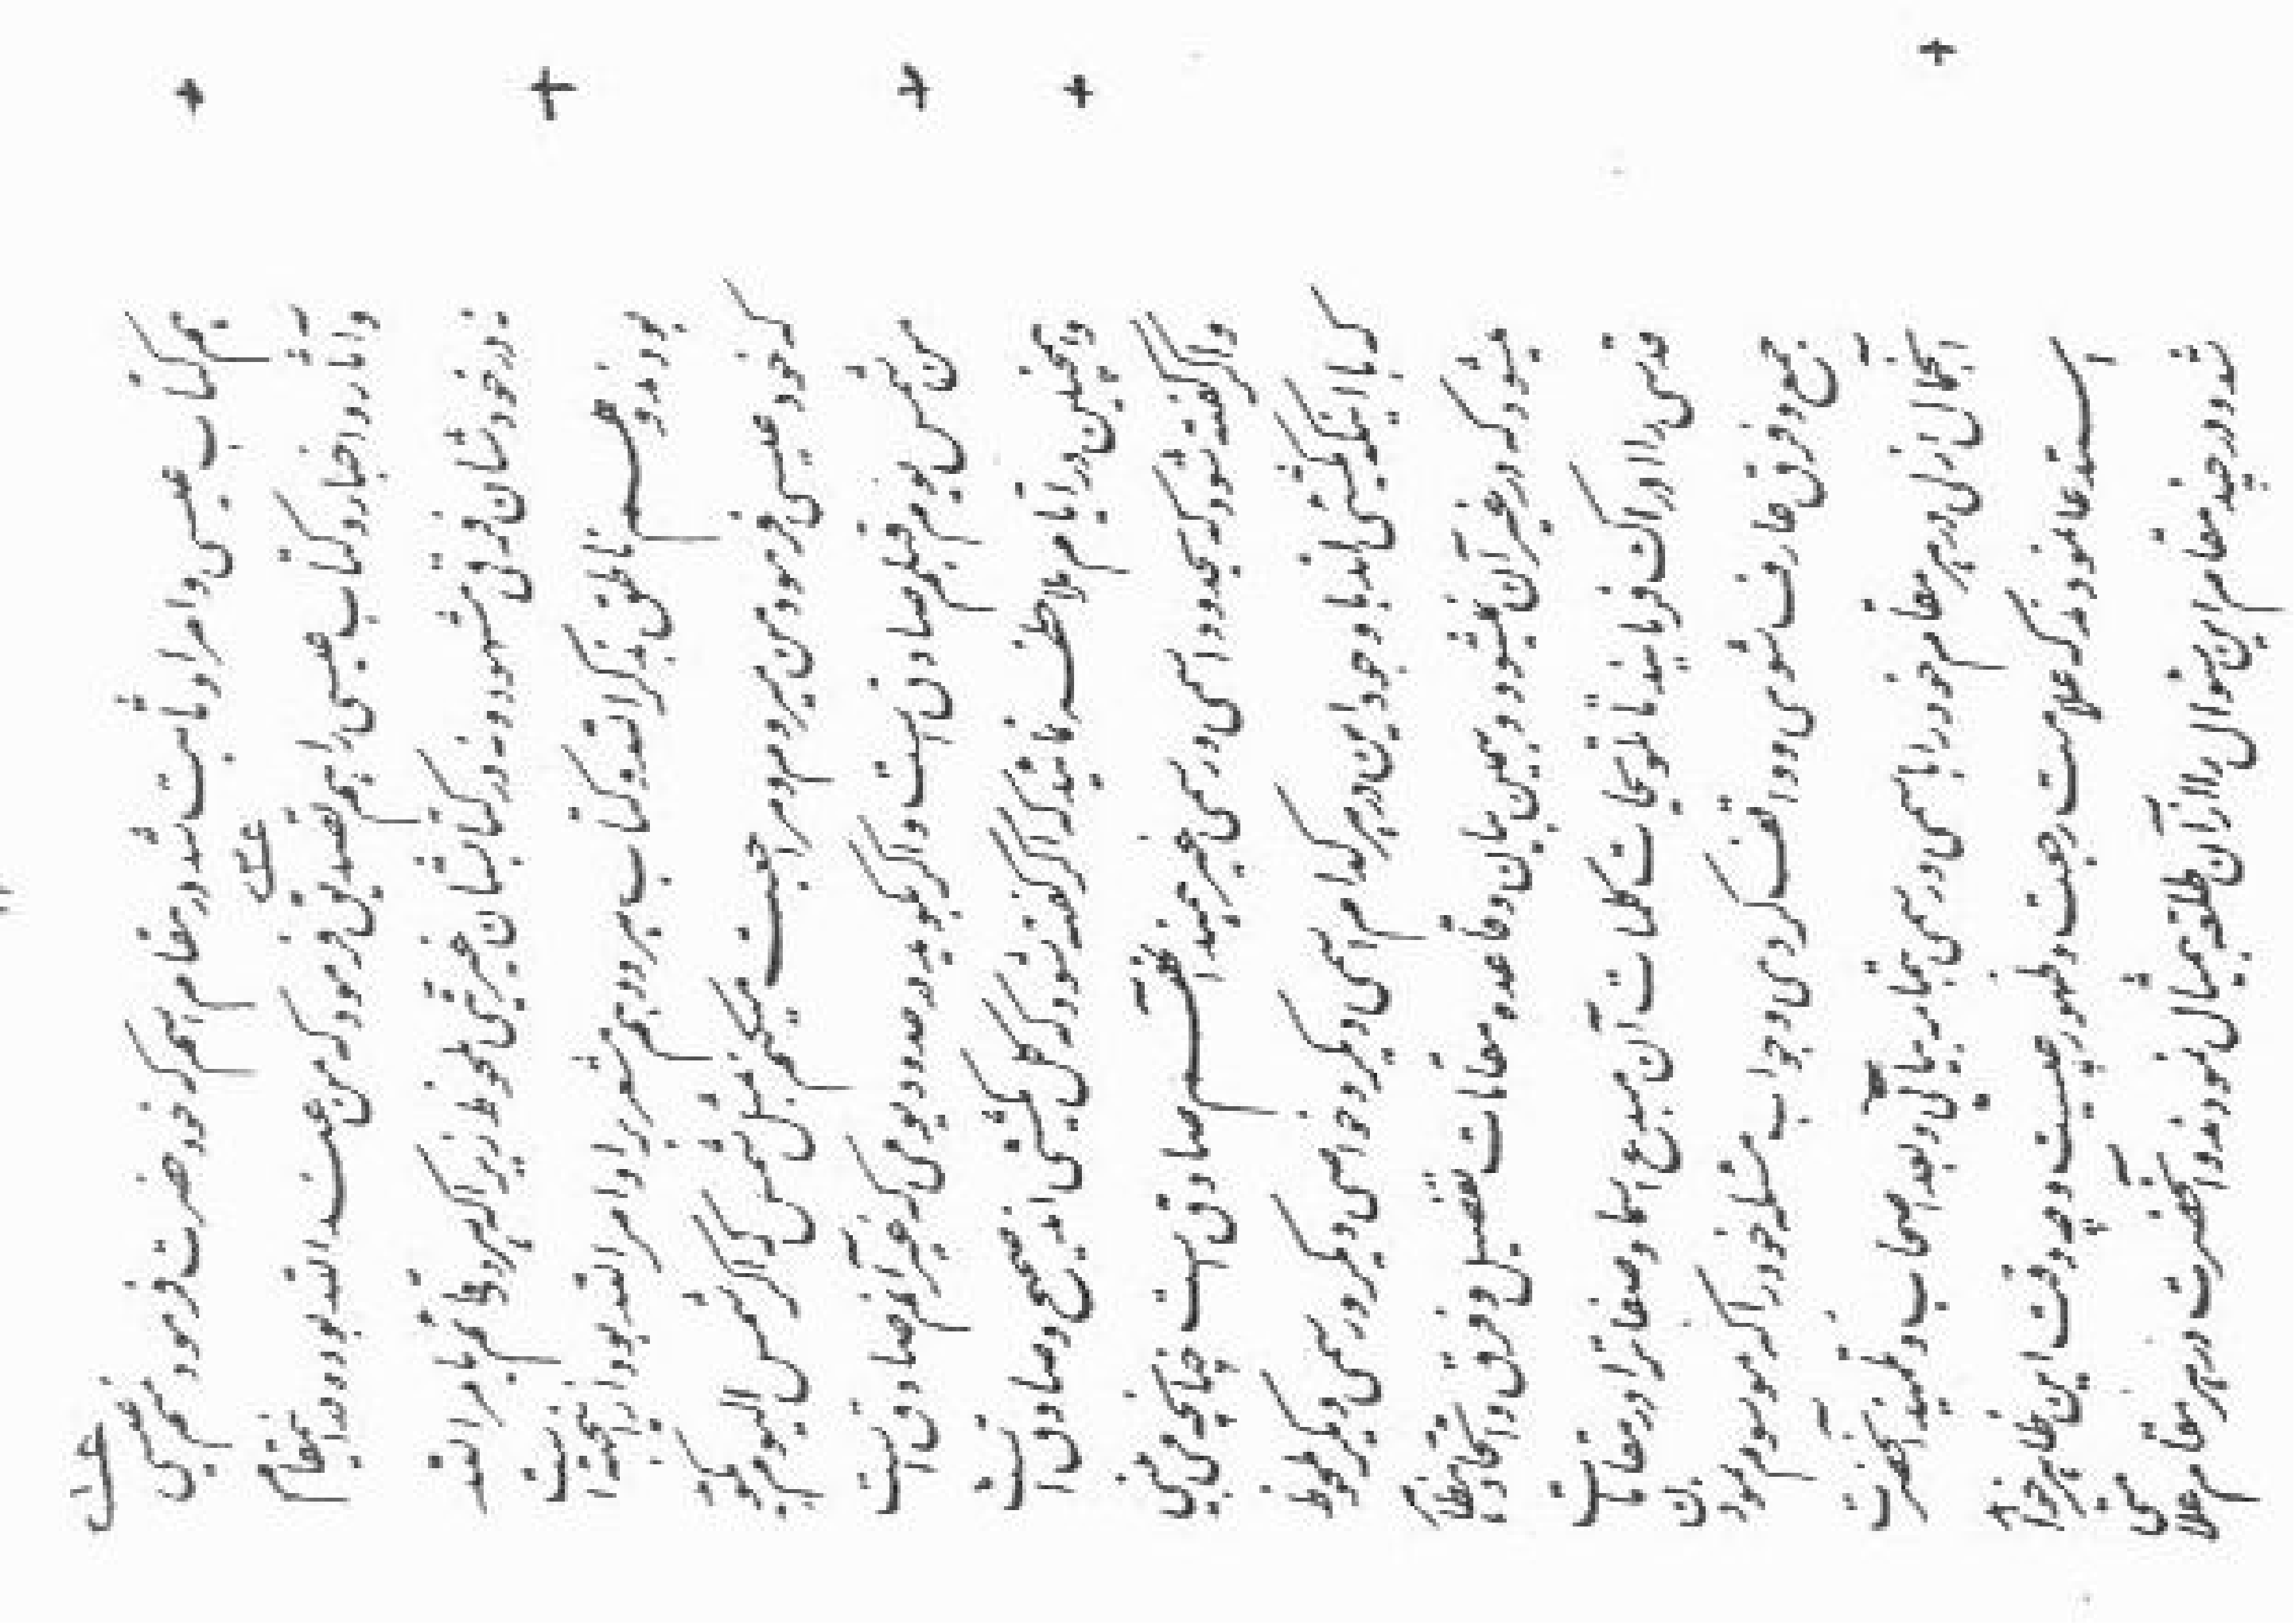 هم کتاب عیسی و امر او ثابت شد در مقام اسم که خود حضرت فرمود منم عیسی
و آثار و اخبار و کتاب عیسی را هم تصدیق فرمود که من عند الله بوده در اینمقام
نه در خودشان فرقی مشهود و نه در کتابشان غیریتی ملحوظ زیرا که هر دو قائم بامر الله
بودند و هم ناطق بذکر الله و کتاب هر دو هم مشعر بر اوامر الله بود از اینجهت است
که خود عیسی فرمود من میروم و مراجعت میکنم بمثل شمس که اگر شمس الیوم بگوید
من شمس یوم قبلم صادق است و اگر بگوید در حدود یومی که غیر آنم صادق است
و همچنین در ایام ملاحظه نمائید که اگر گفته شود که کل یکشئ اند صحیح و صادق است
و اگر گفته شود که بحدود اسمی و رسمی غیر همند آنهم صادق است چنانچه می بینی
که با اینکه یکشئ اند با وجود این در هر کدام اسمی دیگر و خواصی دیگر و رسمی دیگر ملحوظ
میشود که در غیر آن نمیشود و بهمین بیان و قاعده مقامات تفصیل و فرق و اتحاد مظاهر
قدسی را ادراک فرمائید تا تلویحات کلمات آن مبدع اسما و صفات را در مقامات
جمع و فرق عارف شوی و واقف گردی و جواب مسئله خود را در موسوم نمودن
آنجمال ازلی در هر مقام خود را باسمی و رسمی بتمامه بیابی و بعد اصحاب و تلامیذ آنحضرت
استدعا نمودند که علامت رجعت و ظهور چیست و چه وقت این ظاهر خواهد
شد و در چند مقام این سئوال را از آن طلعت بیمثال نمودند و آنحضرت در هر مقام علامتی